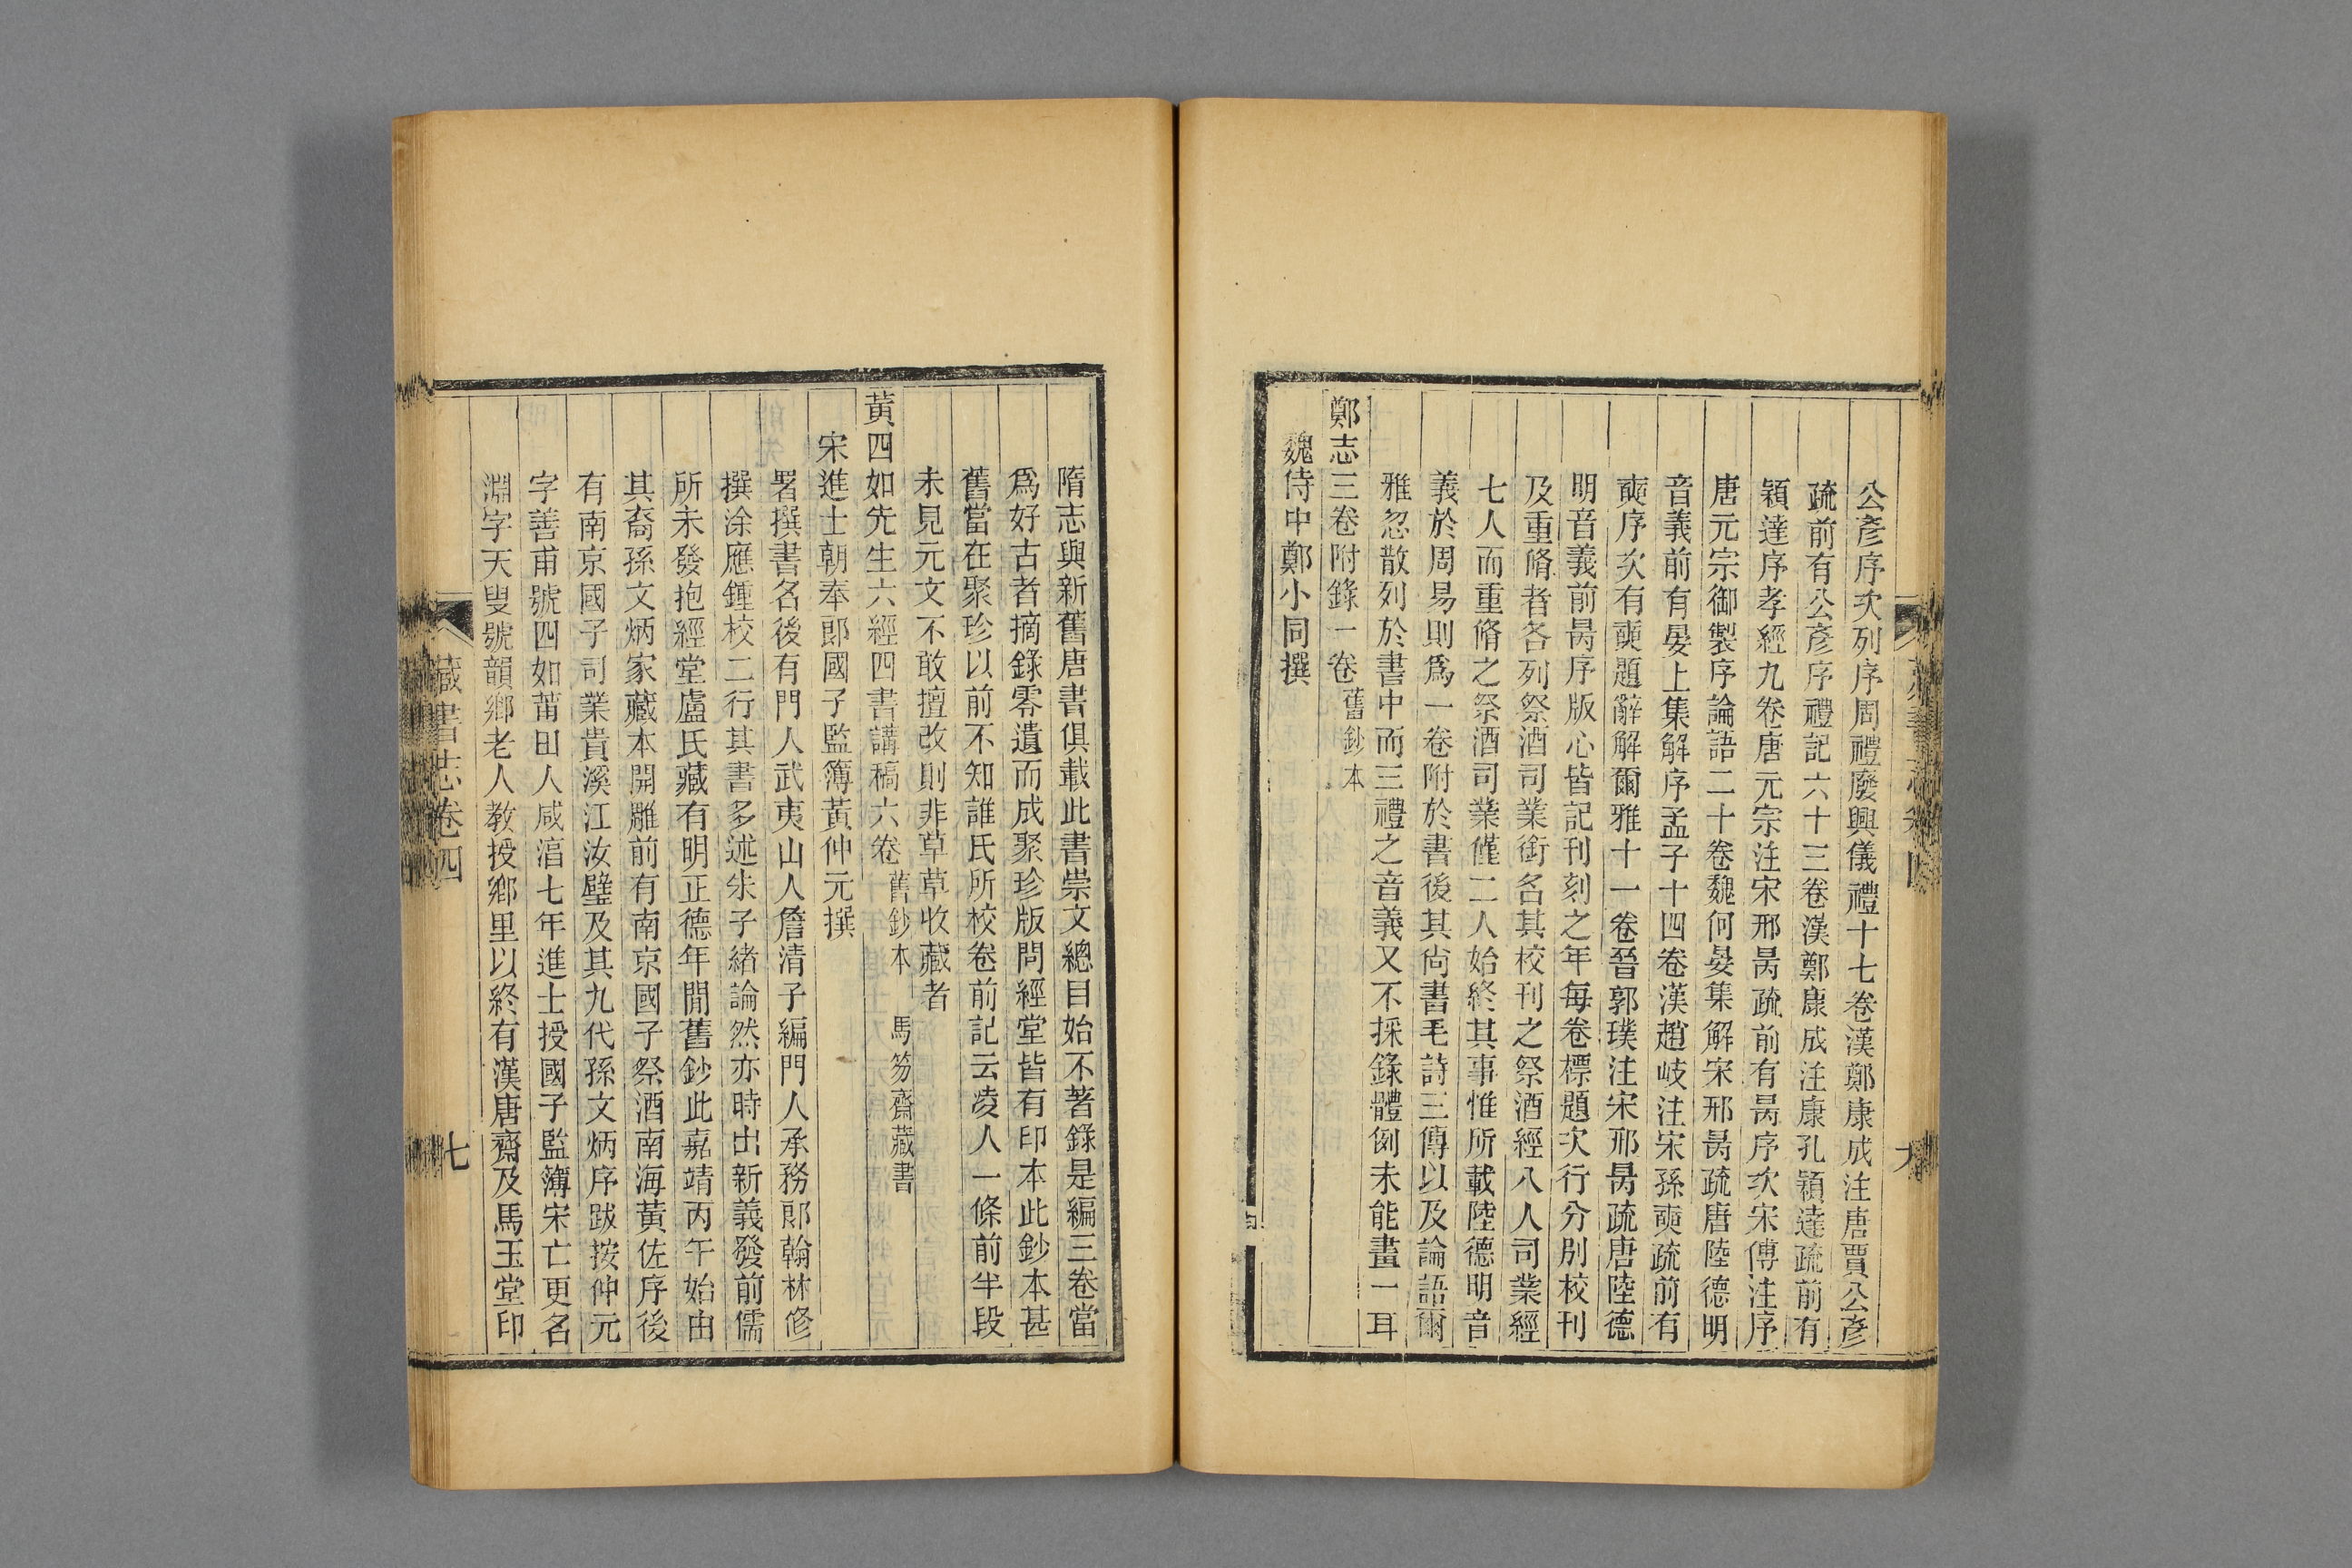 公彥序次列序周禮廢興儀禮十七卷漢鄭康成注唐賈公彥
疏前有公彥序禮記六十三卷漢鄭康成注康孔穎達疏前有
穎達序孝經九卷唐元宗注宋邢昺疏前有昺序次宋傅注序
唐元宗御製序論語二十卷魏何晏集解宋邢昺疏唐陸德明
音義前有晏上集解序孟子十四卷漢趙岐注宋孫奭疏前有
奭序次有奭題辭解爾雅十一卷晉郭璞注宋邢昺疏唐陸德
明音義前昺序版心皆記刊刻之年每卷標題次行分別校刊
及重脩者各列祭酒司業銜名其校刊之祭酒經八人司業經
七人而重脩之祭酒司業僅二人始終其事惟所載陸德明音
義於周易則爲一卷附於書後其尙書毛詩三傳以及論語爾
雅忽散列於書中而三禮之音義又不採錄體例未能畫一耳
鄭志三卷附錄一卷 舊鈔本
魏侍中鄭小同撰
隋志與新舊唐書俱載此書崇文總目始不著錄是編三卷當
爲好古者摘錄零遺而成聚珍版問經堂皆有印本此鈔本甚
舊當在聚珍以前不知誰氏所校卷前記云凌人一條前半段
未見元文不敢擅改則非草草收藏者
黃四如先生六經四書講稿六卷 舊鈔本 馬笏齋藏書
宋進士朝奉郎國子監簿黃仲元撰
署撰書名後有門人武夷山人詹清子編門人承務郎翰林修
撰涂應鍾校二行其書多述朱子緒論然亦時出新義發前儒
所未發抱經堂盧氏藏有明正德年閒舊鈔此嘉靖丙午始由
其裔孫文炳家藏本開雕前有南京國子祭酒南海黃佐序後
有南京國子司業貴溪江汝璧及其九代孫文炳序跋按仲元
字善甫號四如莆田人咸淳七年進士授國子監簿宋亡更名
淵字天叟號韻鄉老人敎授鄉里以終有漢唐齋及馬玉堂印
藏書志卷四
七